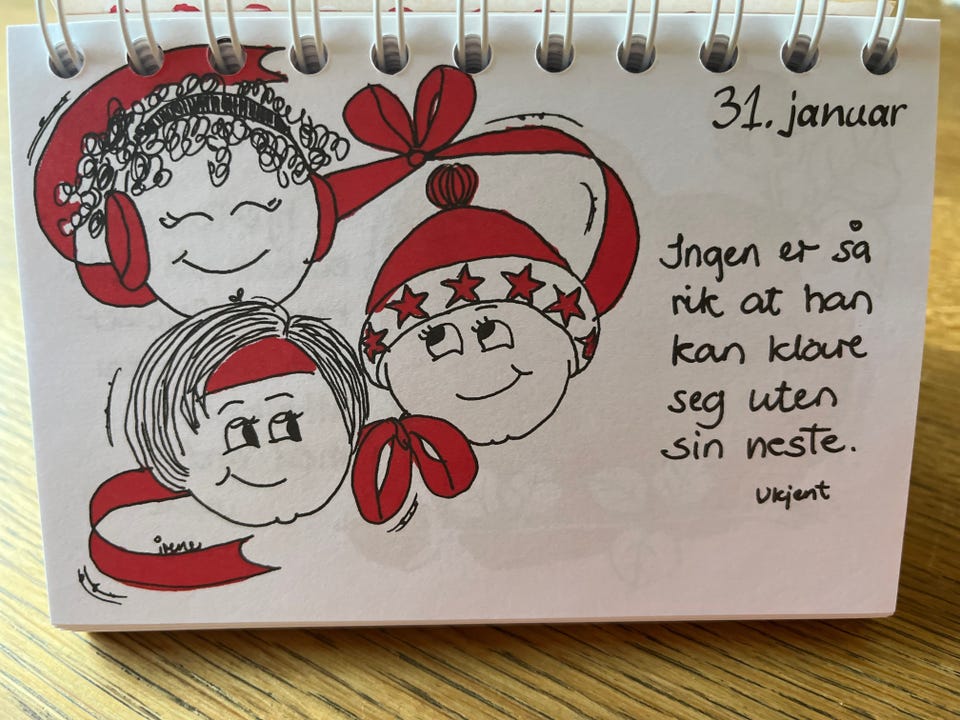 31. januar
Ingen er så
rik at han
kan klare
seg uten
sin neste.
Ukjent
irene